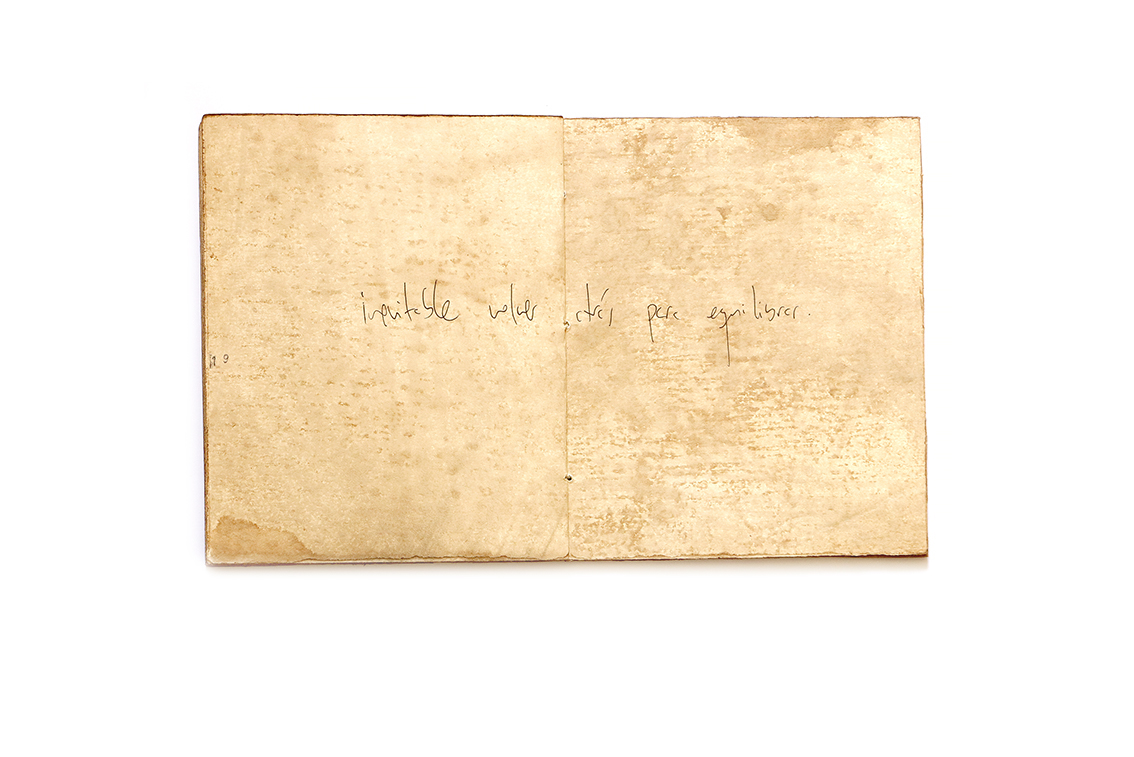 inevitable volver atrás para equilibrar.